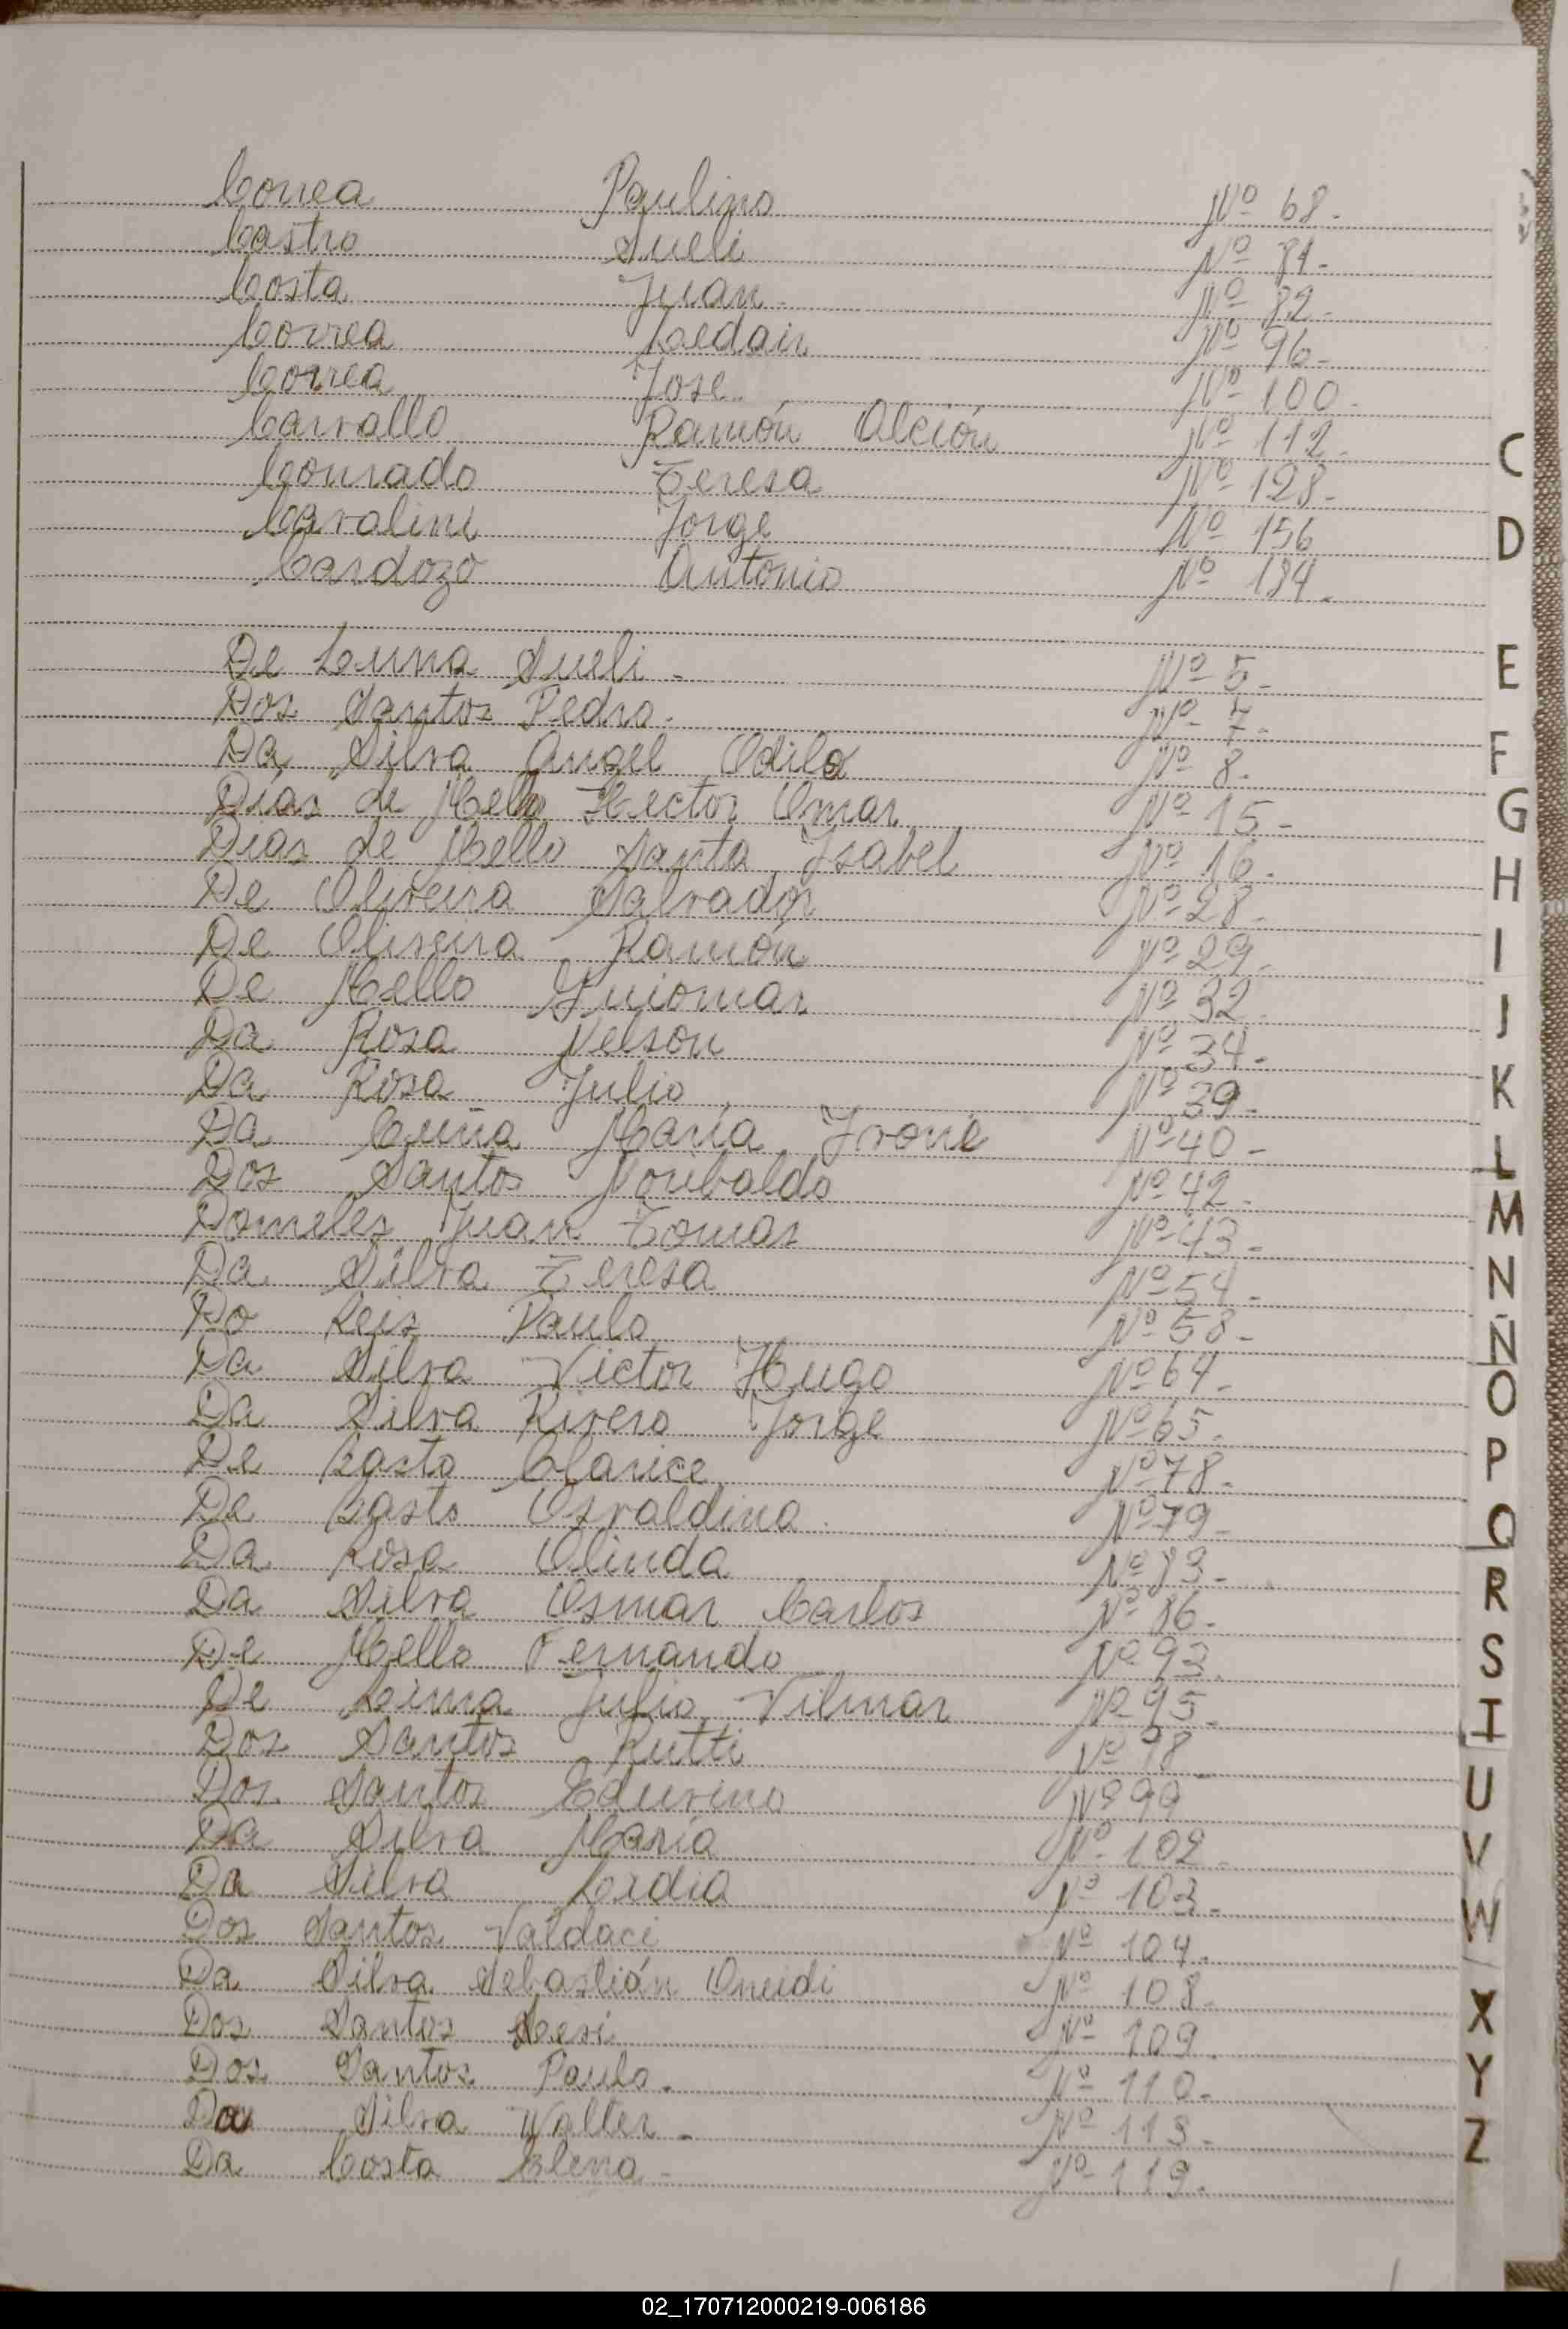 Correa Paulino Nº 68.
Castro Sueli Nº 81.
Costa Juan. Nº 82.
Correa Ledair Nº 96.
Correa Jose. Nº 100.
Carvallo Ramón Alción Nº 112.
Conrado Teresa Nº 128.
Cavalini Jorge Nº 156
Cardozo Antonio Nº 184.
De Luna Sueli. Nº 5.
Dos Santos Pedro. Nº 7.
Da Silva Angel Odilo Nº 8.
Dias de Mello Hector Omar Nº 15.
Dias de Mello Santa Isabel Nº 16.
De Oliveira Salvador Nº 28.
De Oliveira Ramón Nº 29.
De Mello Guiomar Nº 32.
Da Rosa Nelson Nº 34.
Da Rosa Julio Nº 39.
Da Cuña María Ivone Nº 40.
Dos Santos Noribaldo Nº 42.
Dorneles Juan Tomas Nº 43.
Da Silva Teresa Nº 54.
Do Reis Paulo Nº 58.
Da Silva Victor Hugo Nº 64.
Da Silva Rivero Jorge Nº 65.
De Basto Clarice Nº 78.
De Basto Osvaldina Nº 79.
Da Rosa Olinda Nº 83.
Da Silva Osmar Carlos Nº 86.
De Mello Fernando Nº 93.
De Lima Julio Vilmar Nº 95.
Dos Santos Rutti Nº 98
Dos Santos Edurino Nº 99
Da Silva María Nº 102.
Da Silva Lidia Nº 103.
Dos Santos Valdaci Nº 104.
Da Silva Sebastián Oneidi Nº 108.
Dos Santos Nº 109.
Dos Santos Paulo. Nº 110.
Da Silva Walter. Nº 113.
Da Costa Elena. Nº 119.
C
D
E
F
G
H
I
J
K
L
M
N
Ñ
O
P
Q
R
S
T
U
V
W
X
Y
Z
02_170712000219-006186